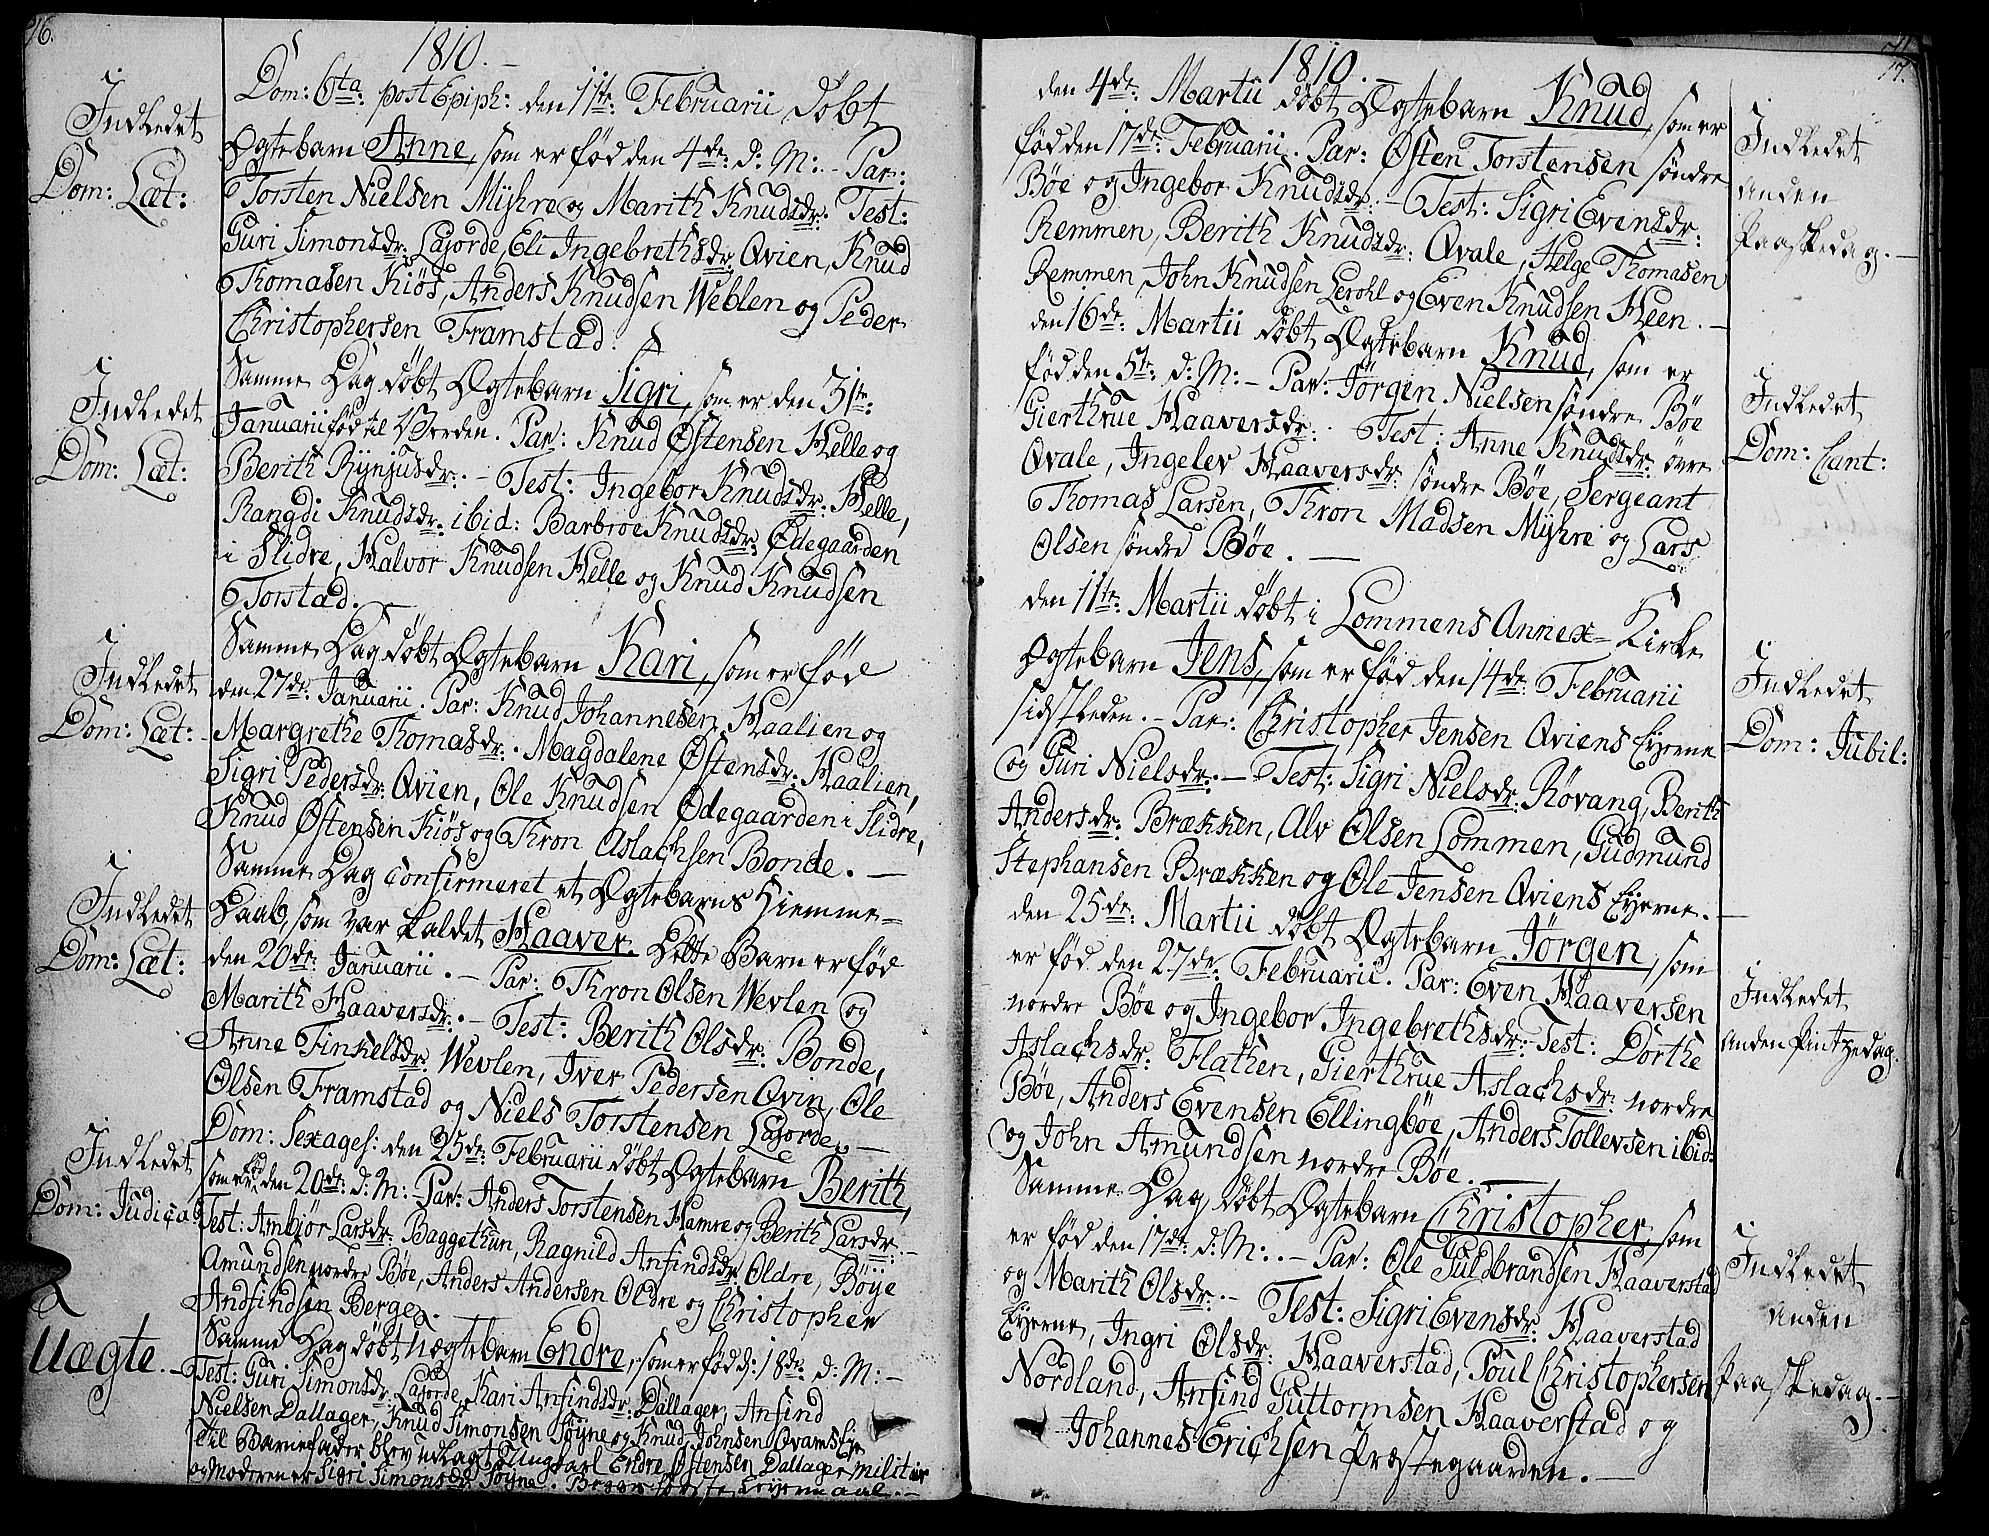 76.
1810.
Indledet
Dom: Læt:
Dom: 6ta: post Epiph: den 11te: Februarii døbt
Ægtebarn Anne, som er fød den 4de: d: M: - Par:
Torsten Nielsen Myhre og Marith Knudsdr: Test:
Guri Simonsdr: Lajorde, Eli Ingebrethsdr: Qvien, Knud
Thomasen Kiøs, Anders Knudsen Weblen og Peder
Christophersen Framstad.
Indledet
Dom: Læt:
Samme Dag døbt Ægtebarn Sigri, som er den 31te:
Januarii fød til Verden. Par: Knud Østensen Helle og
Berith Rynjusdr: - Test: Ingebor Knudsdr: Helle,
Rangdi Knudsdr: ibid: Barbroe Knudsdr: Ødegaarden
i Slidre, Halvor Knudsen Helle og Knud Knudsen
Torstad.
Indledet
Dom: Læt:
Samme Dag døbt Ægtebarn Kari, som er fød
den 27de: Januarii. Par: Knud Johannesen Haalien og
Margrethe Thomasdr: Magdalene Østensdr: Haalien,
Sigri Pedersdr: Qvien, Ole Knudsen Ødegaarden i Slidre,
Knud Østensen Kiøs og Thron Aslachsen Bonde. -
Indledet
Dom: Læt:
Samme Dag confirmeret et Ægtebarns Hiemme-
Daab, som var kaldet Haaver. Dette Barn er fød
den 20de: Januarii. - Par: Thron Olsen Wevlen og
Marith Haaversdr: - Test: Berith Olsdr: Bonde,
Anne Finkelsdr: Wevlen, Iver Pedersen Qvin, Ole
Olsen Framstad og Niels Torstensen Lajorde. -
Indledet
Dom: Judica
Dom: Sexages: den 25de: Februarii døbt Ægtebarn Berith,
som er fød den 20de: d: M: - Par: Anders Torstensen Hamre og Berith Larsdr: -
Test: Ambjør Larsdr: Baggethun, Ragnild Anfindsdr: Oldre, Bøÿe
Amundsen nordre Bøe, Anders Andersen Oldre og Christopher
Andfindsen Berge.
Uægte. -
Samme Dag døbt Uægtebarn Endre, som er fød d: 18de: d: M: -
Test: Guri Simonsdr: Lajorde, Kari Anfindsdr: Dallager, Anfind
Nielsen Dallager, Knud Simonsen Søyne og Knud Johnsen Qvamslie
Til Barnefader blev udlagt Ungkarl Endre Østensen Dallager militair
og Moderen er Sigri Simonsdr: Søyne. Begges første Leiermaal. -
77.
1810. -
den 4de: Martii døbt Ægtebarn Knud, som er
fød den 17de: Februarii. Par: Østen Torstensen søndre
Bøe og Ingebor Knudsdr: - Test: Sigri Evensdr:
Remmen, Berith Knudsdr: Qvale, Helge Thomasen
Remmen, John Knudsen Lerohl og Even Knudsen Heen. -
Indledet
anden
Paaskedag. -
den 16de: Martii døbt Ægtebarn Knud, som er
fød den 5te: d: M: - Par: Jørgen Nielsen søndre Bøe
Gierthrue Haaversdr: Test: Anne Knudsdr: øvre
Qvale, Ingelev Haaversdr: søndre Bøe, Sergeant
Thomas Larsen, Thron Madsen Myhre og Lars
Olsen søndre Bøe. -
Indledet
Dom: Cant:
den 11te: Martii døbt i Lommens Annex-Kirke
Ægtebarn Jens, som er fød den 14de: Februarii
sidstleden. - Par: Christopher Jensen Qviens Eyerne
og Guri Nielsdr: - Test: Sigri Nielsdr: Røvang, Berith
Andersdr: Brækken, Alv Olsen Lommen, Gudmund
Stephansen Brækken og Ole Jensen Qviens Eyerne. -
Indledet
Dom: Jubil:
den 25de: Martii døbt Ægtebarn Jørgen, som
er fød den 27de: Februarii. Par: Even Haaversen
nordre Bøe og Ingebor Ingebrethsdr: - Test: Dorthe
Aslachsdr: Flathen, Gierthrue Aslachsdr: nordre
Bøe, Anders Evensen Ellingbøe, Anders Tollevsen ibid:
og John Amundsen nordre Bøe. -
Indledet
anden Pintzedag.
Samme Dag døbt Ægtebarn Christopher, som
er fød den 17de: d: M: . - Par: Ole Guldbrandsen Haaverstad
og Marith Olsdr: - Test: Sigri Evensdr: Haaverstad
Eyerne, Ingri Olsdr: Haaverstad, Poul Christophersen
Nordland, Anfind Guttormsen Haaverstad og
Johannes Erichsen Præstegaarden. -
Indledet
anden
Paaskedag. -